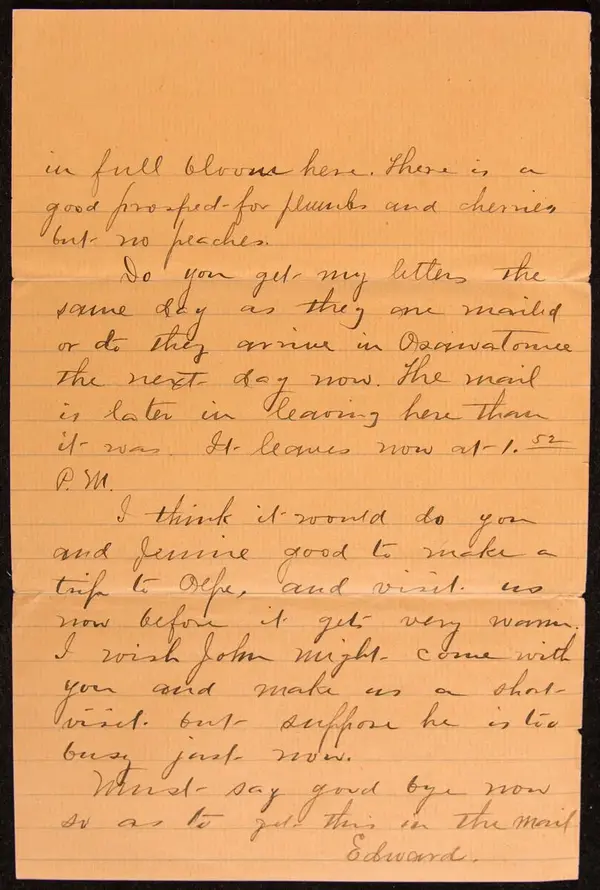 in full bloom here. There is a
good prospect for plumbs and cherries
but no peaches.
Do you get my letters the
same day as they are mailed
or do they arrive in Osawatomie
the next day now. The mail
is later in leaving here than
it was. It leaves now at 1.52
P.M.
I think it would do you
and Jennie good to make a
trip to Olpe, and visit us
now before it gets very warm.
I wish John might come with
you and make us a short
visit but suppose he is too
busy just now.
Must say good bye now
so as to get this in the mail
Edward.